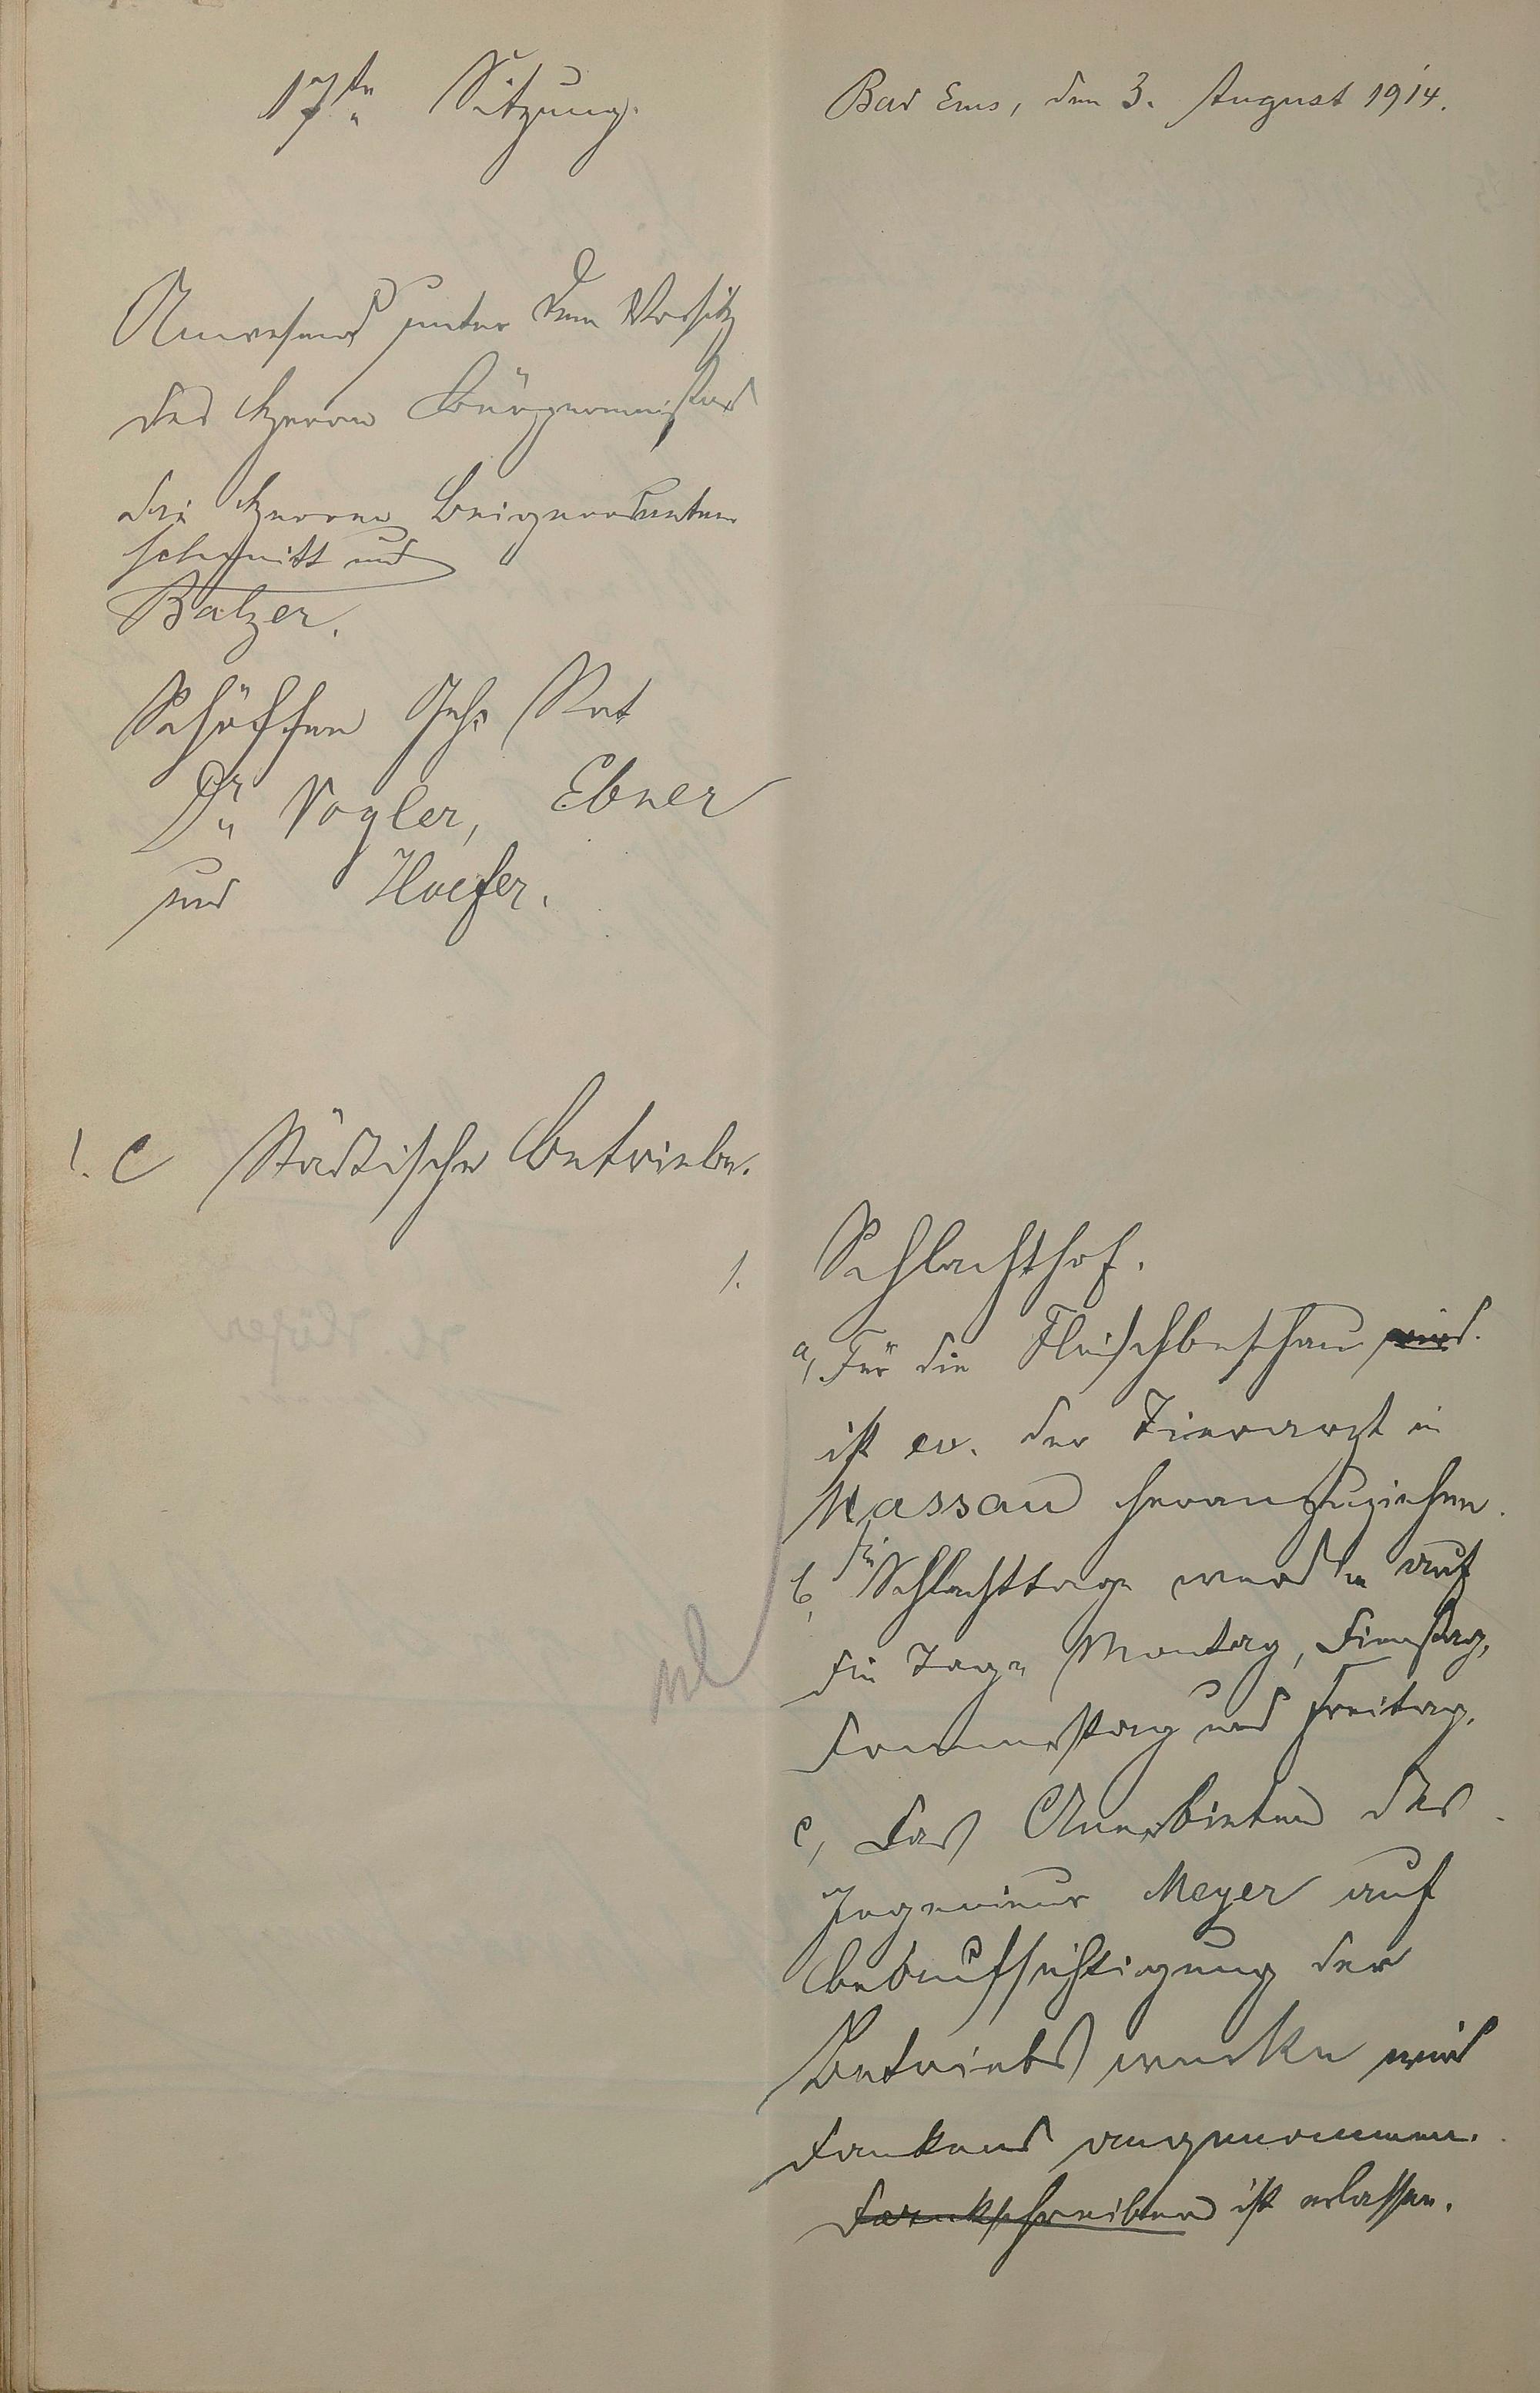 17te Sitzung.
Bad Ems, den 3. August 1914.
Anwesend unter dem Vorsitz
des Herrn Bürgermeisters
die Herren Beigeordneten
Schmitt und
Balzer.
Schöffen Geh. Rat
Dr. Vogler, Ebner
und Hoefer.
1. C Städtische Betriebe.
1. Schlachthof.
a, Für die Fleischbeschau wird
ist ev. der Tierarzt in
Nassau heranzuziehen.
b, die Schlachttage werden auf
die Tage Montag, Dienstag,
Donnerstag und Freitag.
c, Das Anerbieten des
Ingenieur Meyer auf
Beaufsichtigung der
Betriebswerke wird
dankend angenommen.
Dankschreiben ist erlassen.